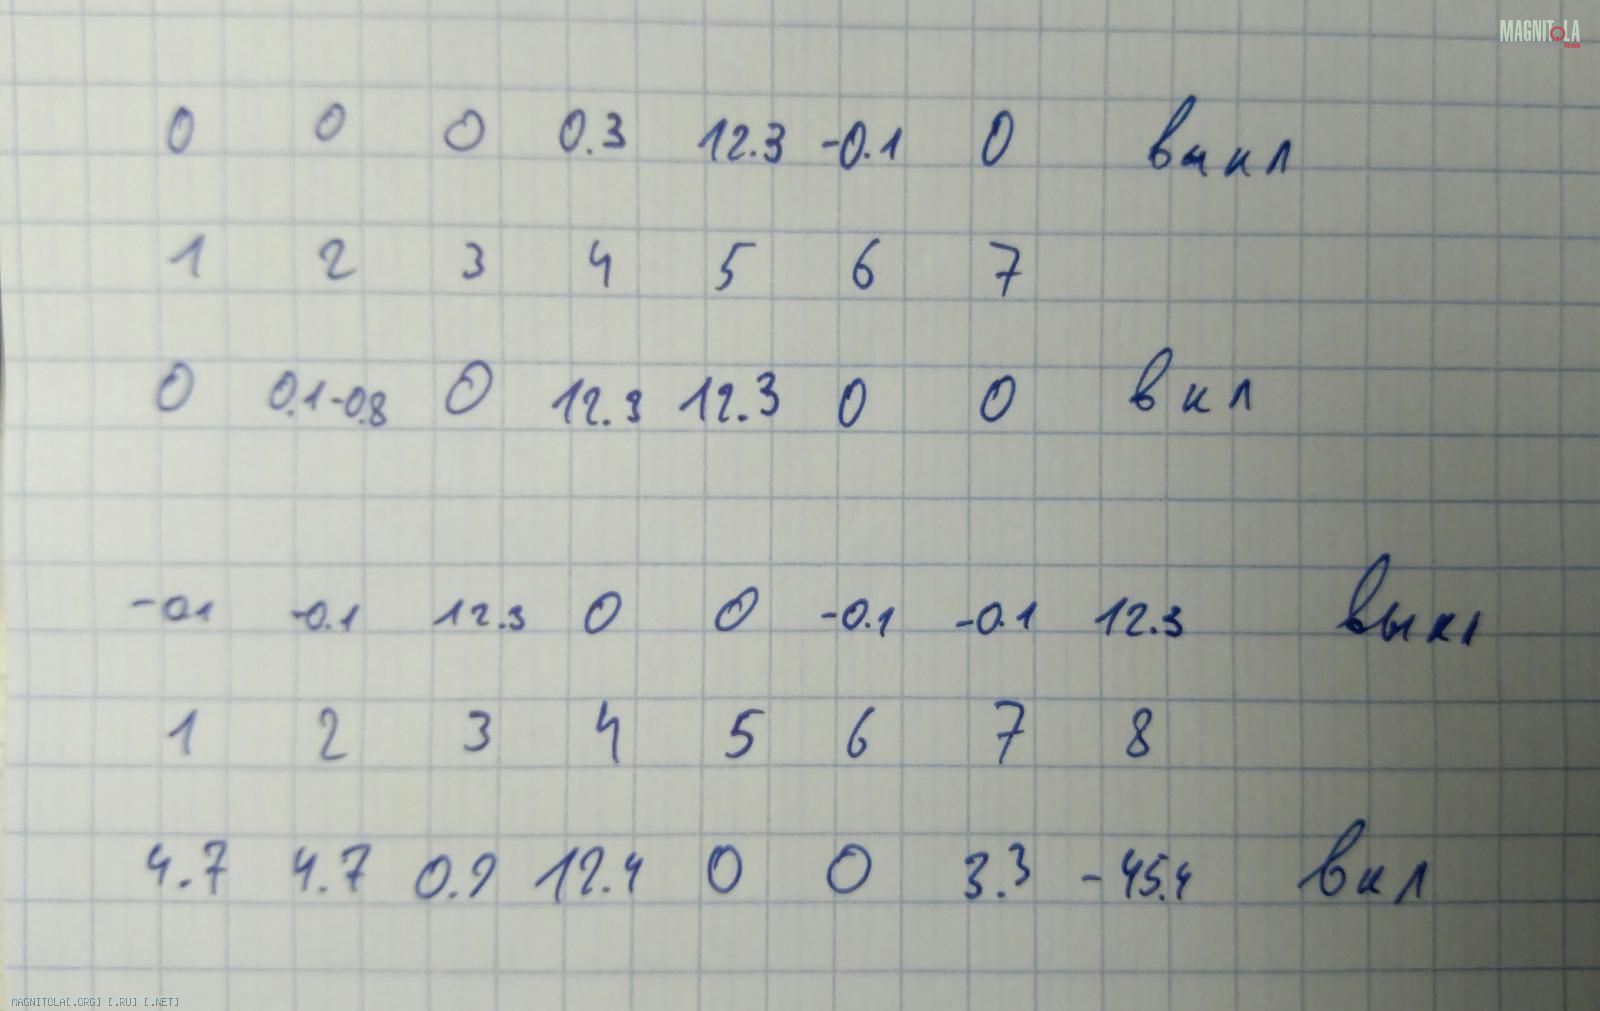 MAGNITOLA
Team
0 0 0 0.3 12.3 -0.1 0 выкл
1 2 3 4 5 6 7
0 0.1-0.8 0 12.3 12.3 0 0 вкл
-0.1 -0.1 12.3 0 0 -0.1 -0.1 12.3 выкл
1 2 3 4 5 6 7 8
4.7 4.7 0.9 12.4 0 0 3.3 -45.4 вкл
MAGNITOLA[.ORG] [.RU] [.NET]